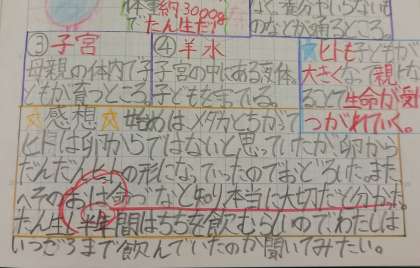 体重約3000gでたん生だ!
養分やいらないものなどが通るところ。
③子宮
母親の体内で子どもが育つところ。
④羊水
子宮の中にある液体。
子どもを守っている。
ヒトも子どもが
大きくなって親と
ることで生命が受け
つがれていく。
☆感想☆始めはメダカとちがって
ヒトは卵からではないと思っていたが卵から
だんだんヒトの形になっていったのでおどろいた。また
へそのおは命づなと知り本当に大切だと分かった。
たん生し半年間はちちを飲むらしいので、わたしは
いつごろまで飲んでいたのか聞いてみたい。